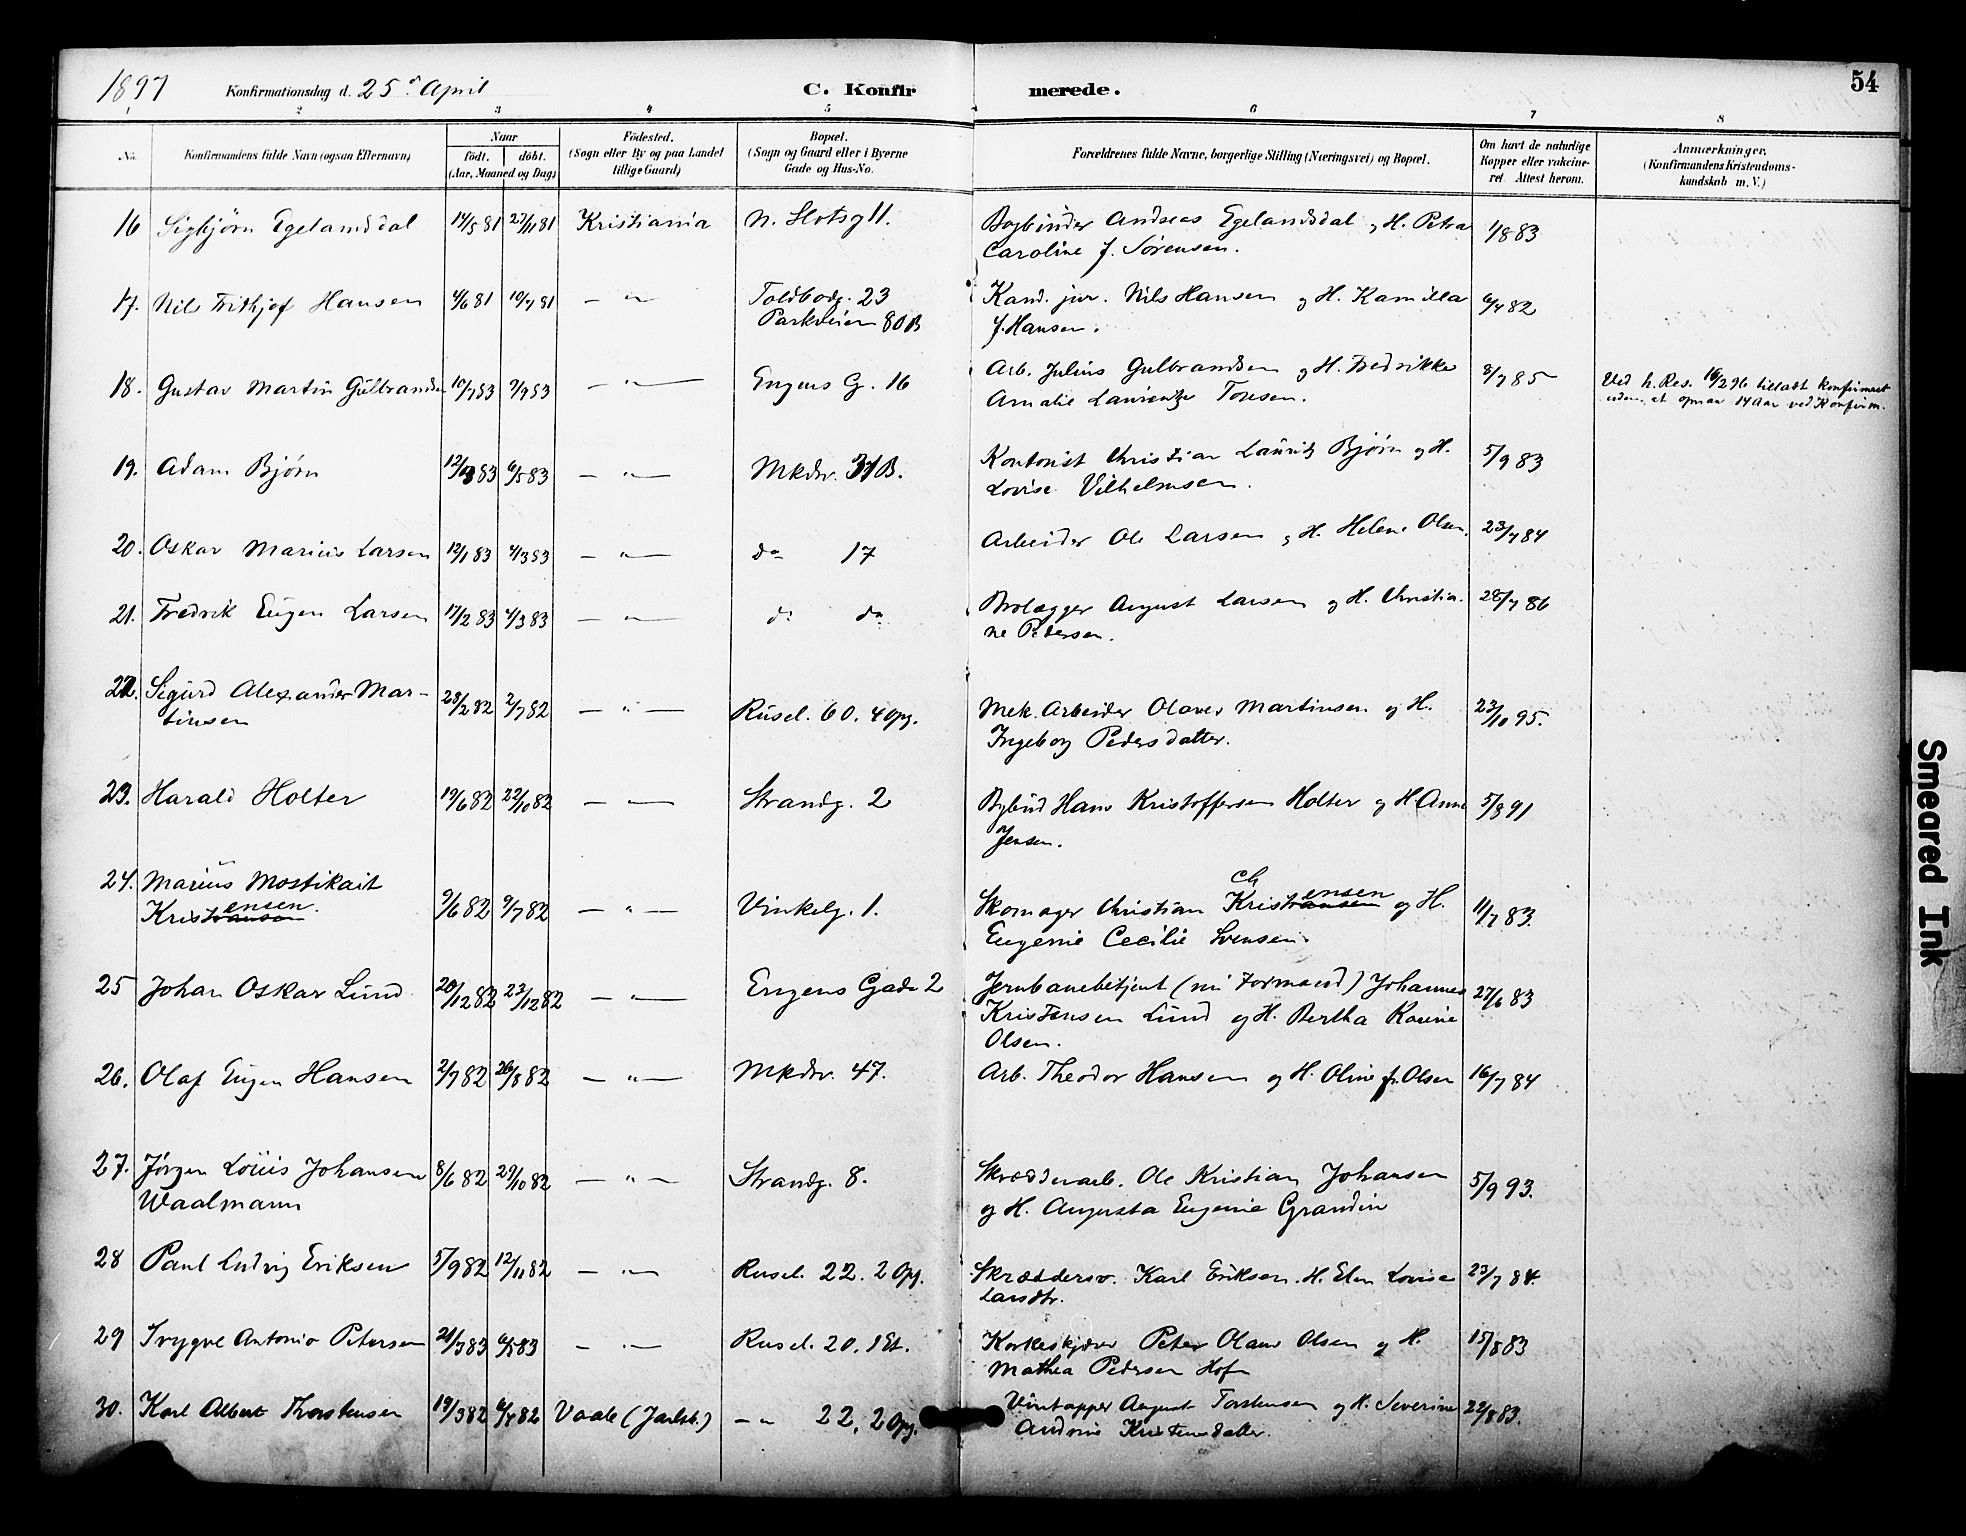 1897 Konfirmationsdag d. 25de April C. Konfirmerede. 54
1 2 3 4 5 6 7 8
No. Konfirmandens fulde Navn (ogsaa Efternavn) Naar født. døbt. (Aar, Maaned og Dag) Fødested. (Sogn eller By og paa Landet tillige Gaard) Bopæl. (Sogn og Gaard eller i Byerne Gade og Hus-No. Forældrenes fulde Navne, borgerlige Stilling (Næringsvei) og Bopæl. Om havt de naturlige Kopper eller vakcineret. Attest herom. Anmærkninger. (Konfirmandens Kristendomskundskab m. V.)
16 Sigbjørn Egelandsdal 14/5 81 27/11 81 Kristiania N. Slotsg 11. Bogbinder Andreas Egelandsdal og H. Petra 1/8 83
Caroline f. Sørensen.
17. Nils Frithjof Hansen 4/6 81 10/7 81 — " — Toldbodg. 23 Kand. jur. Nils Hansen og H. Kamilla 6/4 82
Parkveien 80B f. Hansen.
18. Gustav Martin Gulbrandsen 10/7 83 9/9 83 — " — Engens G. 16 Arb. Julius Gulbrandsen og H. Fredrikke 8/7 85 Ved k. Res. 18/2 96 tilladt konfirmert
Amalie Laurentze Toresen. uden at opnaa 14 Aar ved Konfirm.
19. Adam Bjørn 12/3 83 6/5 83 — " — Mkdv. 31B. Kontorist Christian Lauritz Bjørn og H. 5/9 83
Lovise Vilhelmsen.
20. Oskar Marius Larsen 12/1 83 4/3 83 — " — do 17 Arbeider Ole Larsen og H. Helene Olsen. 23/7 84
21. Fredrik Eugen Larsen 17/2 83 4/3 83 — " — do do Brolægger August Larsen og H. Christia- 28/7 86
ne Pedersen.
22. Sigurd Alexander Mar- 28/2 82 2/7 82 — " — Rusel. 60. 4 Opg. Mek. Arbeider Olaves Martinsen og H. 23/10 95.
tinsen Ingeborg Pedersdatter.
23. Harald Holter 19/6 82 22/10 82 — " — Strandg. 2 Bybud Hans Kristoffersen Holter og H. Anne 5/8 91
Jensen.
24. Marius Mostikait 9/6 82 9/7 82 — " — Vinkelg. 1. Skomager Christian Ch Kristiansen ensen og H. 11/7 83.
Kristiansen ensen. Eugenie Cecilie Svensen.
25 Johan Oskar Lund 20/12 82 23/12 82 — " — Engens Gade 2 Jernbanebetjent (nu Formand) Johannes 27/6 83
Kristensen Lund og H. Bertha Karine
Olsen.
26. Olaf Eugen Hansen 2/7 82 26/8 82 — " — Mkdv. 47. Arb. Theodor Hansen og H. Oline f. Olsen 16/7 84
27. Jørgen Louis Johansen 8/6 82 29/10 82 — " — Strandg. 8. Skrædderarb. Ole Kristian Johansen 5/9 93.
Waalmann og H. Augusta Eugenie Grandin
28 Paul Ludvig Eriksen 5/9 82 12/11 82 — " — Rusel. 22. 2 Opg. Skræddersv. Karl Eriksen. H. Elen Lovise 23/7 84.
Larsdtr.
29 Trygve Antonio Petersen 21/3 83 6/5 83 — " — Rusel. 20. 1 Et. Korkeskjærer Peter Olaus Olsen og H. 15/8 83
Mathea Pedersen Hof
30. Karl Albert Thorstensen 19/3 82 6/4 82 Vaale (Jarlsb.) — " 22. 2 Opg. Vintapper August Torstensen og H. Severine 22/8 83.
Andrine Kristensdatter.
Smeared Ink